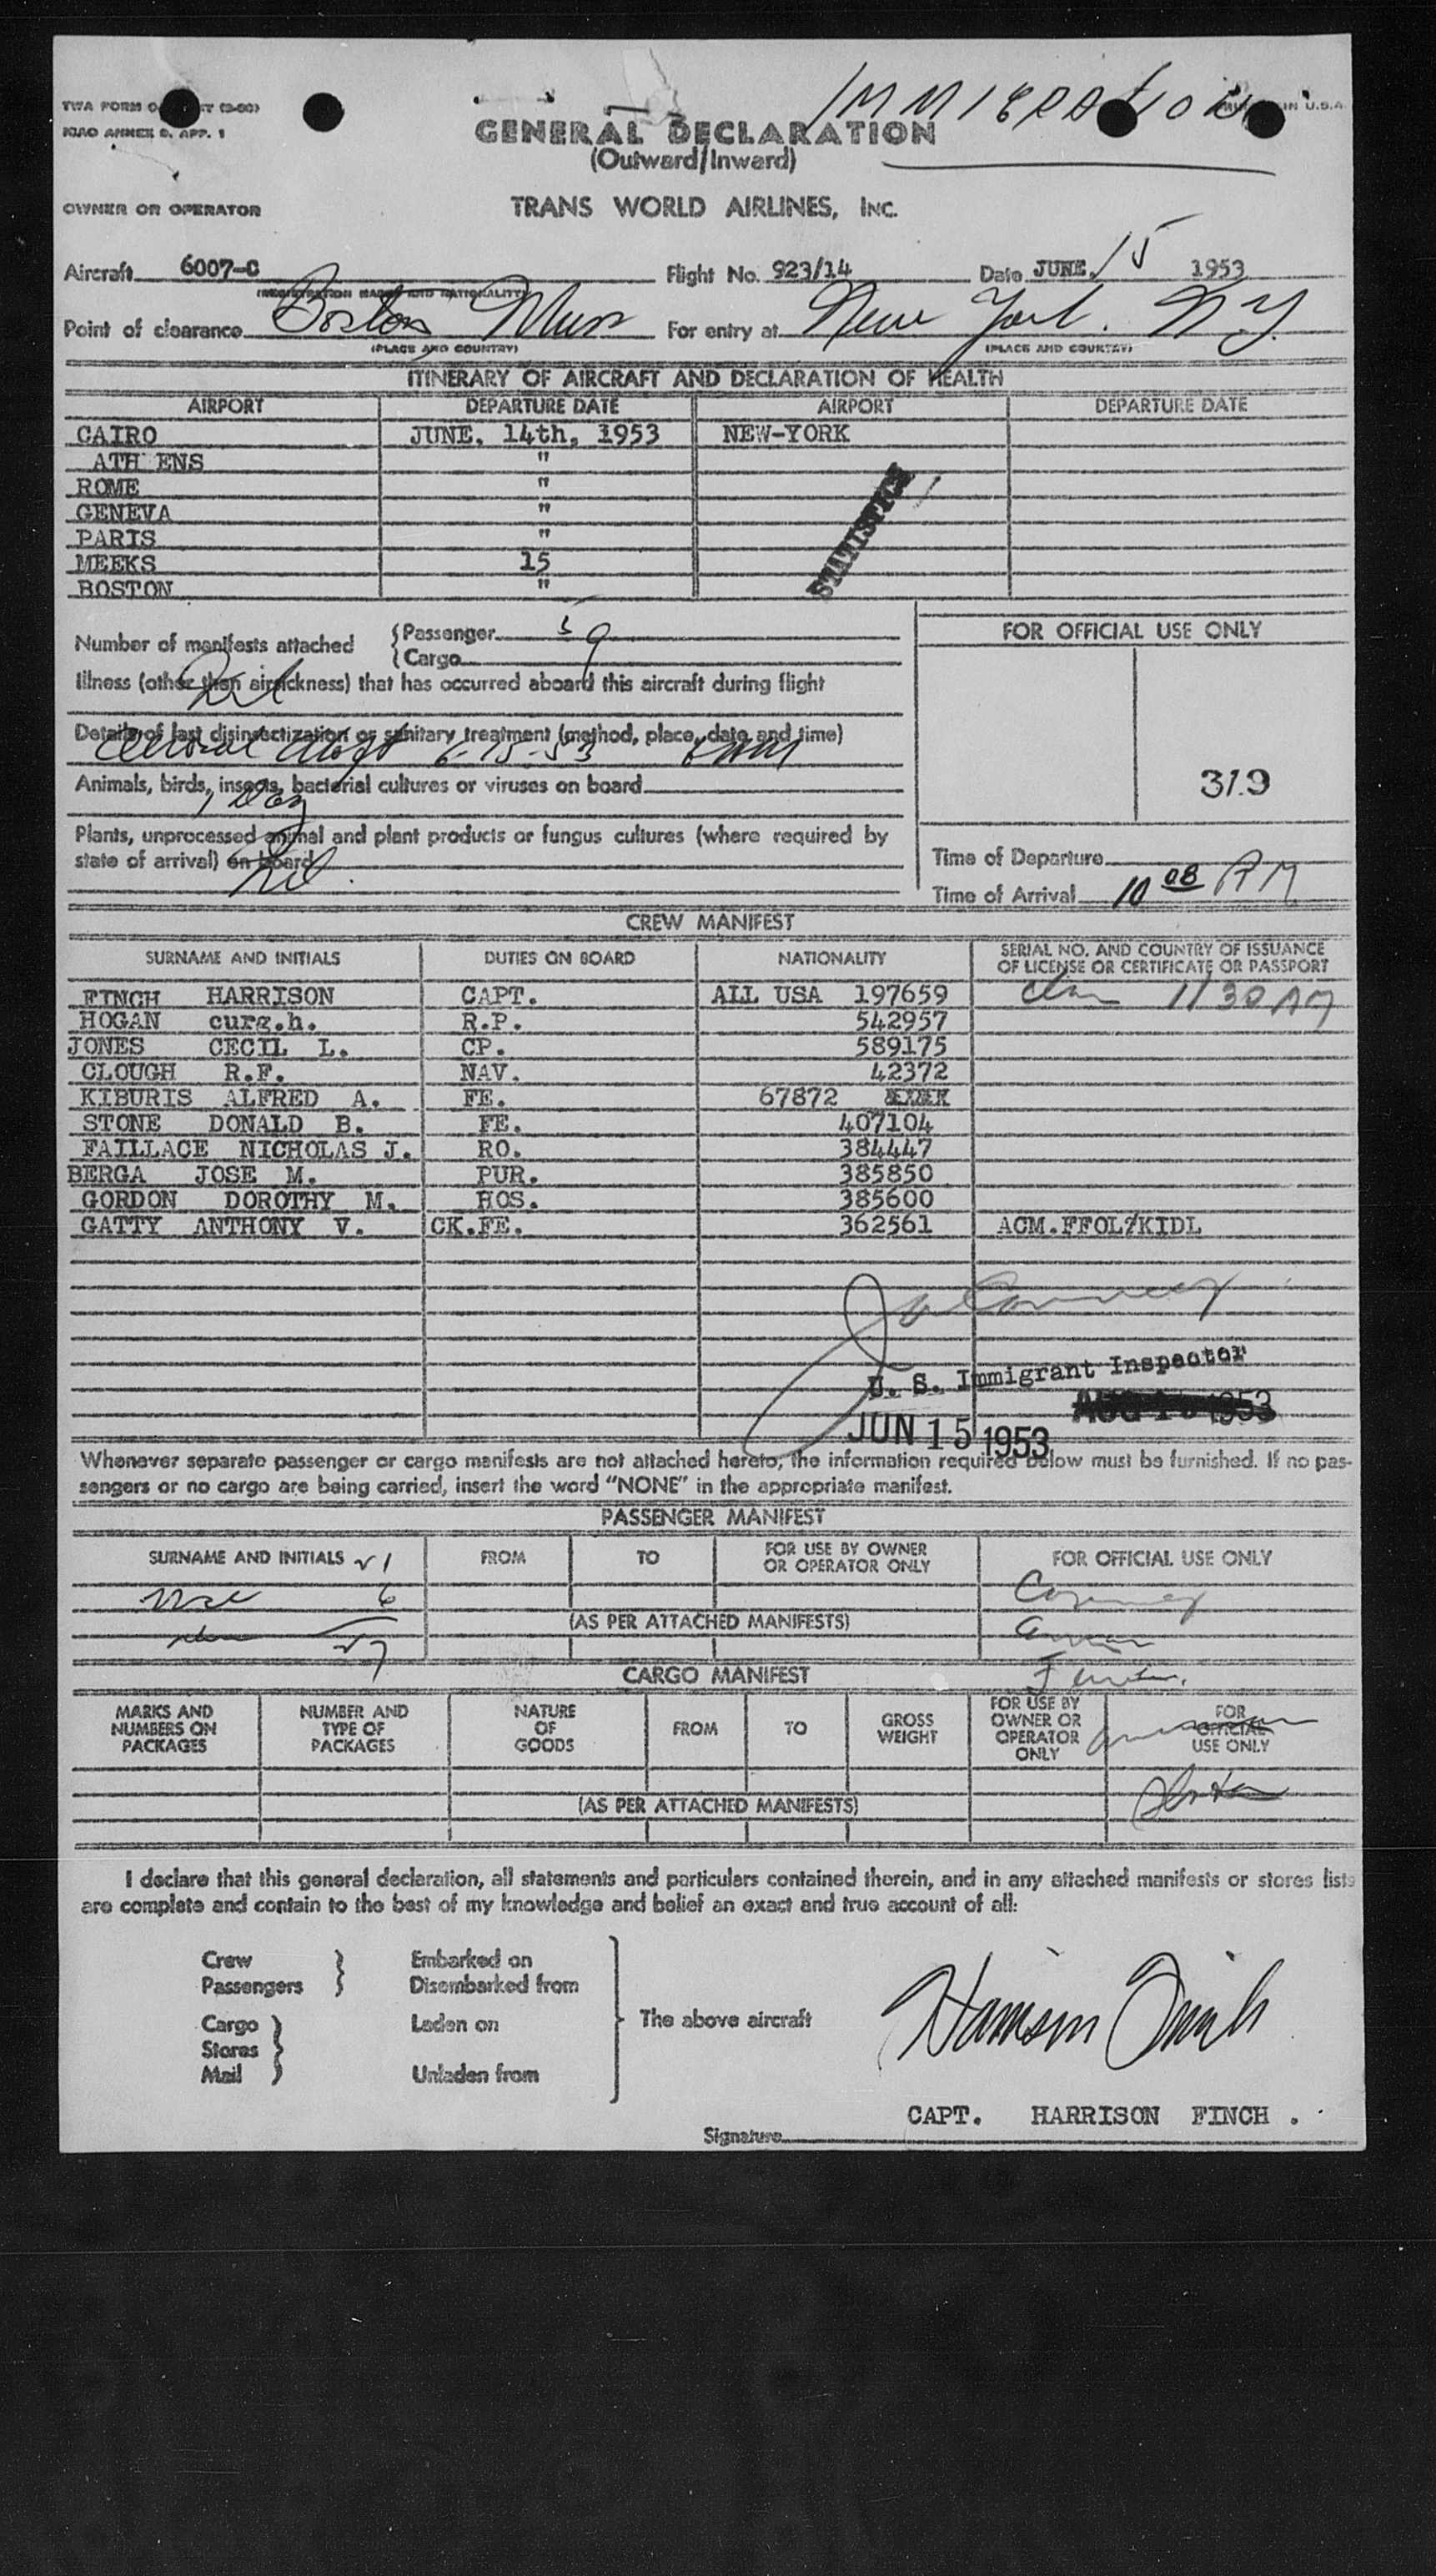 IMMIGRATION
TWA FORM
ICAO ANNEX 9, APP. 1
IN U.S.A.
GENERAL DECLARATION
(Outward/Inward)
OWNER OR OPERATOR
TRANS WORLD AIRLINES, INC.
Aircraft 6007-C Flight No. 923/14 Date JUNE. 15 1953
(REGISTRATION MARKS AND NATIONALITY)
Point of clearance Boston Mass For entry at New York. N.Y.
(PLACE AND COUNTRY) (PLACE AND COUNTRY)
ITINERARY OF AIRCRAFT AND DECLARATION OF HEALTH
AIRPORT DEPARTURE DATE AIRPORT DEPARTURE DATE
CAIRO JUNE. 14th, 1953 NEW-YORK
ATH ENS "
ROME "
GENEVA "
PARIS "
MEEKS 15
BOSTON "
STATISTICS
Number of manifests attached { Passenger 5 9
{ Cargo
FOR OFFICIAL USE ONLY
Illness (other than airsickness) that has occurred aboard this aircraft during flight
Nil
Details of last disinsectization or sanitary treatment (method, place, date and time)
6-15-53
Animals, birds, insects, bacterial cultures or viruses on board
1 Dog
319
Plants, unprocessed animal and plant products or fungus cultures (where required by
state of arrival) on board
Nil.
Time of Departure
Time of Arrival 10 08 AM
CREW MANIFEST
SURNAME AND INITIALS DUTIES ON BOARD NATIONALITY SERIAL NO. AND COUNTRY OF ISSUANCE OF LICENSE OR CERTIFICATE OR PASSPORT
FINCH HARRISON CAPT. ALL USA 197659 11 30 AM
HOGAN curg.h. R.P. 542957
JONES CECIL L. CP. 589175
CLOUGH R.F. NAV. 42372
KIBURIS ALFRED A. FE. 67872
STONE DONALD B. FE. 407104
FAILLACE NICHOLAS J. RO. 384447
BERGA JOSE M. PUR. 385850
GORDON DOROTHY M. HOS. 385600
GATTY ANTHONY V. CK.FE. 362561 ACM.FFOL/KIDL
U. S. Immigrant Inspector
AUG 15 1953
JUN 15 1953
Whenever separate passenger or cargo manifests are not attached hereto, the information required below must be furnished. If no pas-
sengers or no cargo are being carried, insert the word "NONE" in the appropriate manifest.
PASSENGER MANIFEST
SURNAME AND INITIALS FROM TO FOR USE BY OWNER OR OPERATOR ONLY FOR OFFICIAL USE ONLY
6
(AS PER ATTACHED MANIFESTS)
CARGO MANIFEST
MARKS AND NUMBERS ON PACKAGES NUMBER AND TYPE OF PACKAGES NATURE OF GOODS FROM TO GROSS WEIGHT FOR USE BY OWNER OR OPERATOR ONLY FOR OFFICIAL USE ONLY
(AS PER ATTACHED MANIFESTS)
I declare that this general declaration, all statements and particulars contained therein, and in any attached manifests or stores lists
are complete and contain to the best of my knowledge and belief an exact and true account of all:
Crew } Embarked on
Passengers } Disembarked from
Cargo } Laden on } The above aircraft
Stores }
Mail } Unladen from
Harrison Finch
CAPT. HARRISON FINCH .
Signature